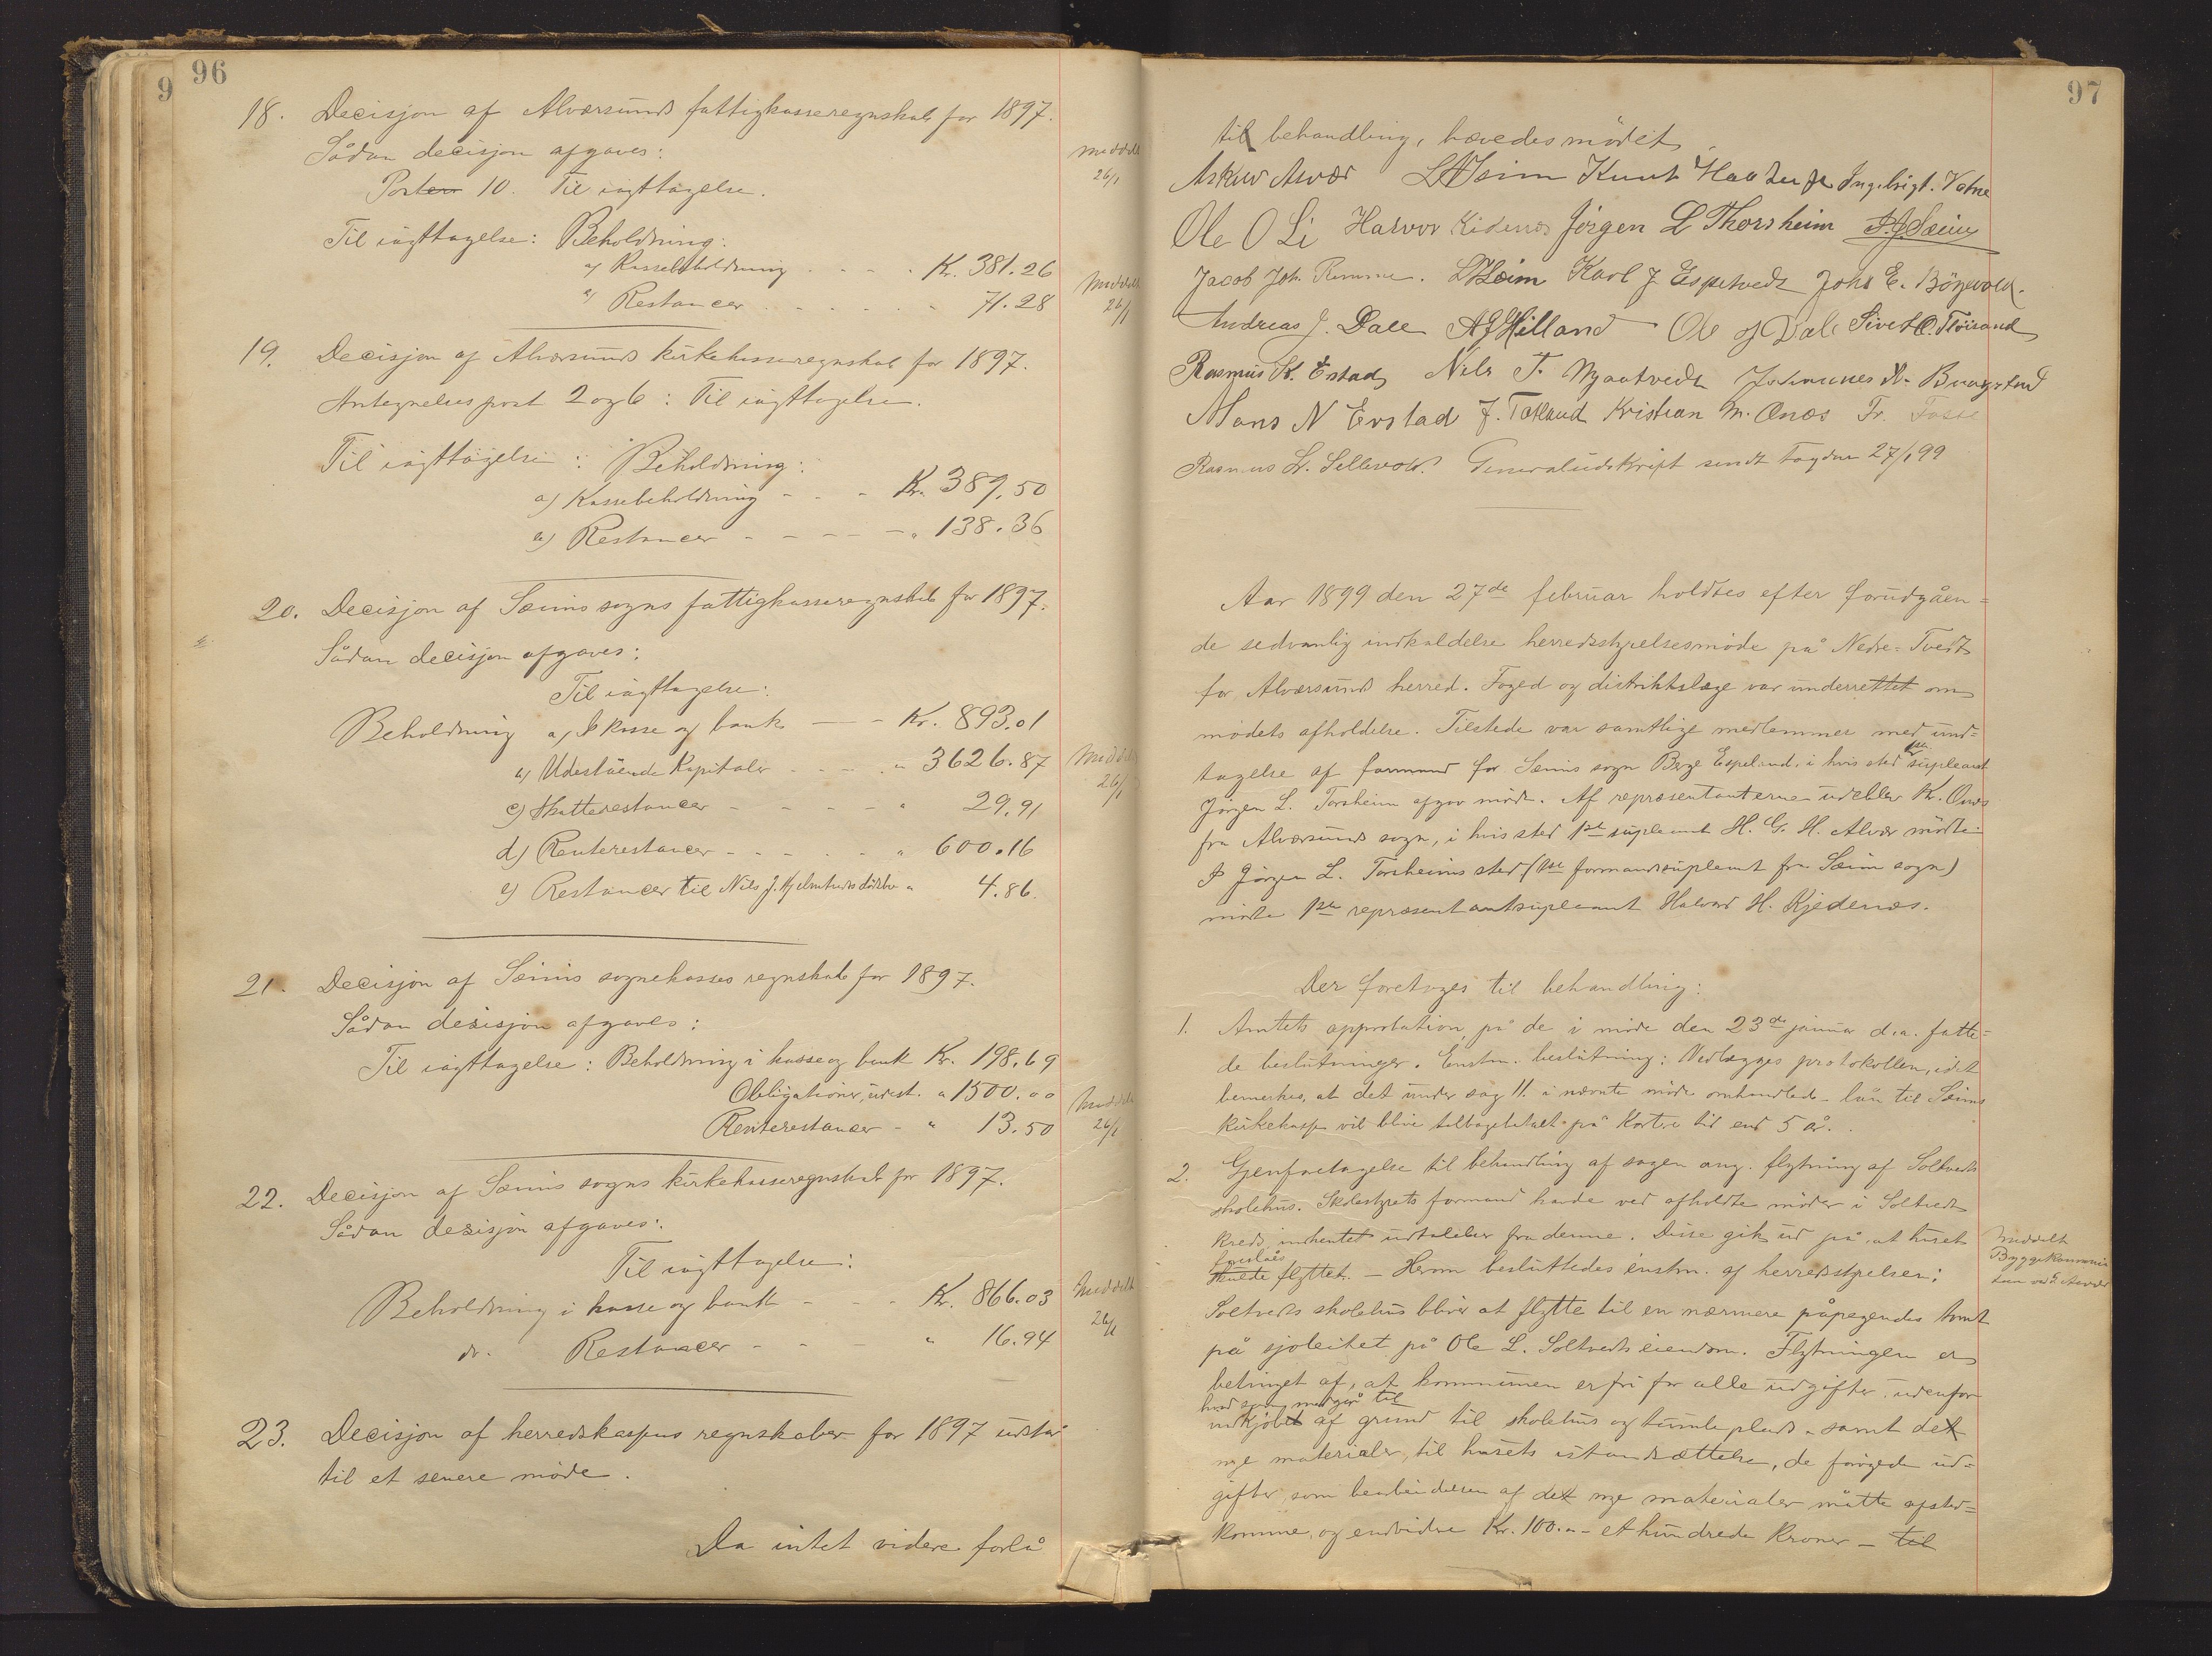 96
18. Decisjon af Alværsunds fattigkasseregnskab for 1897.
Sådan decisjon afgaves:
Posten 10. Til iagttagelse.
Til iagttagelse: Beholdning:
a) Kassebeholdning - - - Kr. 381.26
b) Restancer - - - - - 71.28
Meddelt
26/1
19. Decisjon af Alværsunds kirkekasseregnskab for 1897.
Antegnelsespost 2 og 6: Til iagttagelse.
Til iagttagelse: Beholdning:
a) Kassebeholdning - - - Kr. 389.50
b) Restancer - - - - - " 138.36
Meddelt
26/1
20. Decisjon af Sæims sogns fattigkasseregnskab for 1897.
Sådan decisjon afgaves:
Til iagttagelse:
Beholdning a) I kasse og bank - - Kr. 893.01
b) Udestående Kapitaler - - - " 3626.87
c) Skatterestancer - - - - " 29.91
d) Renterestancer - - - - " 600.16
e) Restancer til Nils J. Hjelmtveds dødsbo " 4.86
Meddelt
26/1
21. Decisjon af Sæims sognekasses regnskab for 1897.
Sådan desisjon afgaves:
Til iagttagelse: Beholdning i kasse og bank Kr. 198.69
Obligationer, udest. " 1500.00
Renterestancer - " 13.50
Meddelt
26/1
22. Decisjon af Sæims sogns kirkekasseregnskab for 1897.
Sådan desisjon afgaves:
Til iagttagelse:
Beholdning i kasse og bank - - - Kr. 866.03
do. Restancer - - - " 16.94
Meddelt
26/1
23. Decisjon af herredskassens regnskaber for 1897 udstår
til et senere møde.
Da intet videre forlå
97
til behandling, hævedes mødet
Askiw Alvær L A Seim Knut Ingebrigt. Vatne
Ole O Li Halvor Kidenes Jørgen L Thorsheim
Jacob Joh. Karl J. Espetvedt Johs E.
Andreas J. Dale A J Hilland Ole J Dale Sivert O. Fløisand
Rasmus K. Erstad Nils T. Mjaatvedt Johannes
Mons N Erstad J. Tofland Kristian M. Onæs Fr. Fosse
Rasmus Sellevold. Generaludskrift sendt fogden 27/1 99
Aar 1899 den 27de februar holdtes efter forudgåen=
de sedvanlig indkaldelse herredsstyrelsesmøde på Nedre-Tvedt
for Alværsunds herred. Foged og distriktslæge var underrettet om
mødets afholdelse. Tilstede var samtlige medlemmer med und=
tagelse af formand for Sæims sogn Berge Espeland, i hvis sted 1ste supleant
Jørgen L. Torsheim afgav møde. Af repræsentanterne udeblev Kr. Onæs
fra Alværsunds sogn, i hvis sted 1ste supleant H. G. H. Alvær mødte.
I Jørgen L. Torsheims sted (1ste formandssupleant fra Sæim sogn)
mødte 1ste repræsentantsupleant Halvard H. Kjedenæs.
Der foretoges til behandling:
1. Amtets approbation på de i møde den 23de januar d.a. fatte=
de beslutninger. Enstm. beslutning: Vedlægges protokollen, idet
bemerkes, at det under sag 11. i nævnte møde omhandlede lån til Sæims
kirkekasse vil blive tilbagebetalt på kortere tid end 5 år.
2. Gjenforetagelse til behandling af sagen ang. flytning af Soltveds
skolehus. Skolestyrets formand havde ved afholdte møder i Soltvedt
kreds indhentet udtalelser fra denne. Disse gik ud på, at huset
foreslåes
skulde flyttet. - Herom besluttedes enstm. af herredsstyrelsen:
Soltveds skolehus bliver at flytte til en nærmere påpegendes tomt
på sjøleitet på Ole L. Soltvedts eiendom. Flytningen er
betinget af, at kommunen er fri for alle udgifter udenfor
hvad som medgår til
indkjøbet af grund til skolehus og tumleplads, samt det
nye materialer, til husets istandsættelse, de forøgede ud=
gifter, som bearbeidelsen af det nye materialer måtte afsted=
komme, og endvidere Kr. 100.00 - et hundrede kroner - til
Meddelt